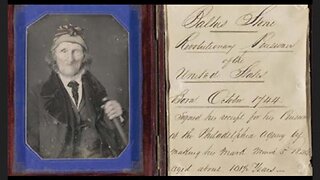 Revolutionary Pensioner
of the
United States
Born October 1744.
Signed his receipt for his Pension
at the Philadelphia Agency by
making his mark
aged about 101½ Years